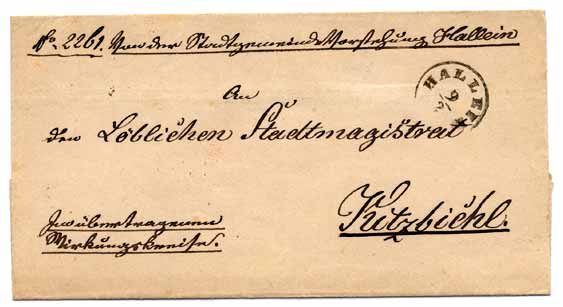 No. 2261. Von der Stadtgemeinde Vorstehung Hallein
HALLEIN
9/2
An
den Löblichen Stadtmagistrat
Kitzbichl.
Im übertragenen
Wirkungskreise.